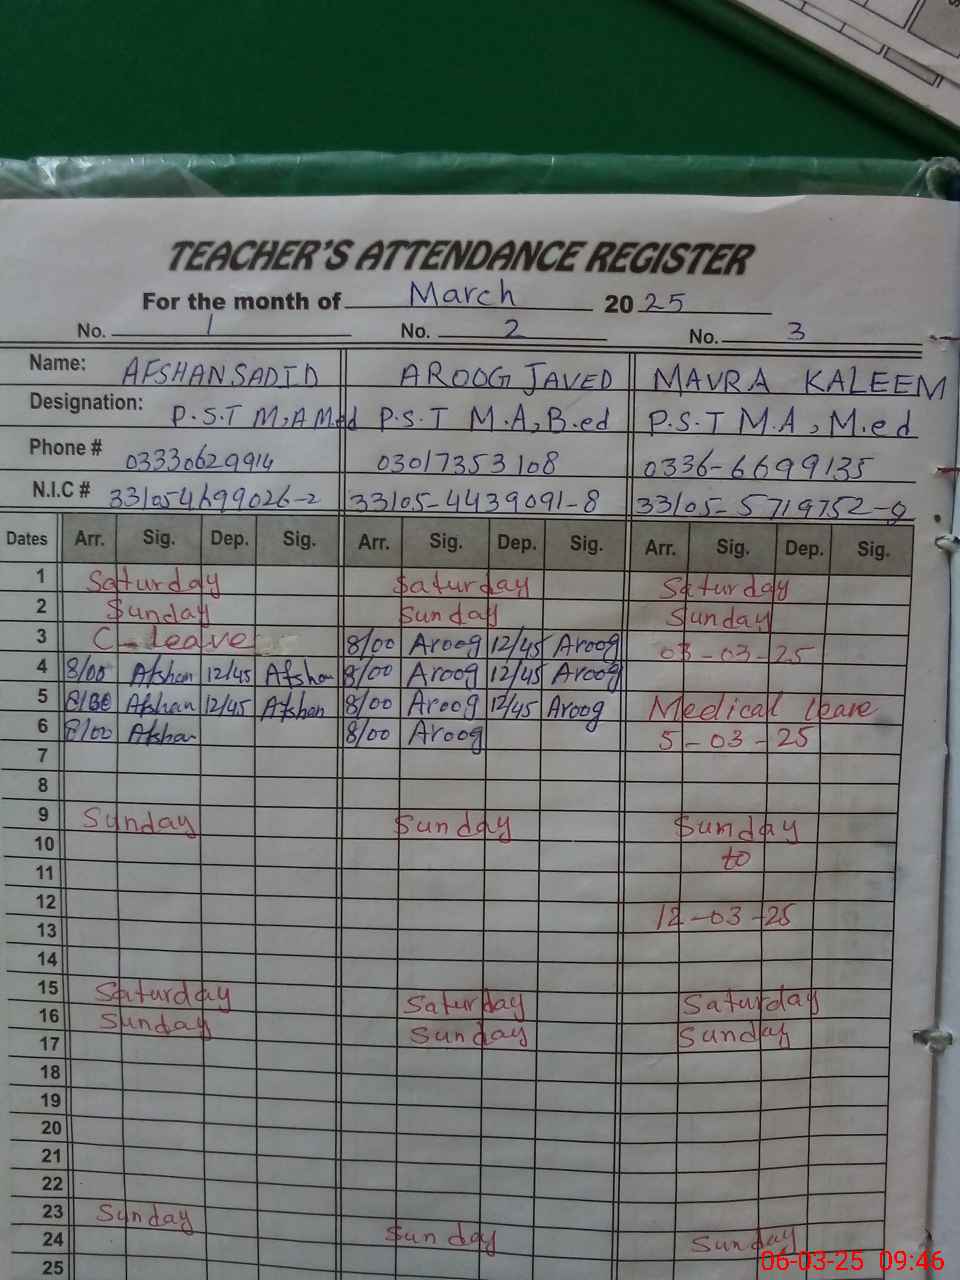 TEACHER'S ATTENDANCE REGISTER
For the month of March 2025
No. 1 No. 2 No. 3
Name: AFSHAN SADID AROOG JAVED MAVRA KALEEM
Designation: P.S.T M.A M.ed P.S.T M.A, B.ed P.S.T M.A, M.ed
Phone # 03330629914 03017353108 0336-6699135
N.I.C # 331054699026-2 33105-4439091-8 33105-5719752-9
Dates Arr. Sig. Dep. Sig. Arr. Sig. Dep. Sig. Arr. Sig. Dep. Sig.
1 Saturday Saturday Saturday
2 Sunday Sunday Sunday
3 C-leave 8/00 Aroog 12/45 Aroog 03-03-25
4 8/00 Afshan 12/45 Afshan 8/00 Aroog 12/45 Aroog
5 Afshan 12/45 Afshan 8/00 Aroog 12/45 Aroog Medical leave
6 8/00 Afshan 8/00 Aroog 5-03-25
7
8
9 Sunday Sunday Sunday
10 to
11
12 12-03-25
13
14
15 Saturday Saturday Saturday
16 Sunday Sunday Sunday
17
18
19
20
21
22
23 Sunday Sunday Sunday
24
25
06-03-25 09:46